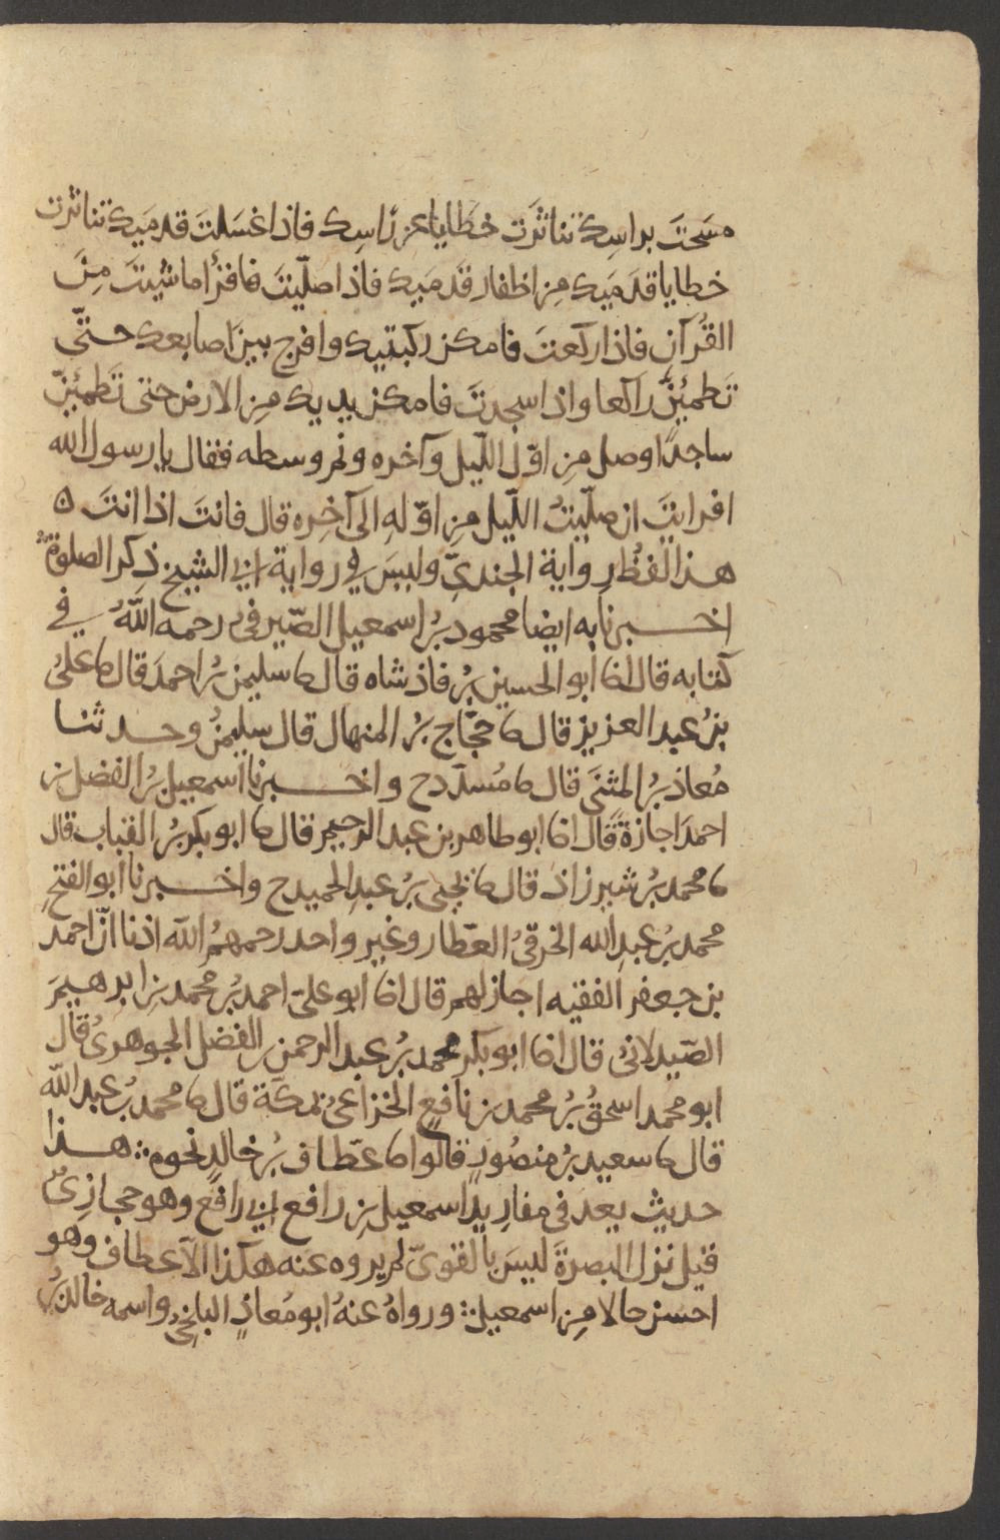 مسَحتَ براسِك تناثَرَت خطَايا عن رأسِك فاذا غسَلتَ قدمَيك تناثرت
خطايا قدمَيك مِن اظفار قدَميك فاذا صلّيتَ فاقرأ ما شِيتَ مِنَ
القُرآنِ فاذا ركعتَ فامكن ركبتيك وافرج بينَ اصابعك حتّى
تَطمئِنَّ راكعا واذا سجدتَ فامكن يديك مِن الارض حتى تَطمئِنّ
ساجدًا وصل مِن اوّل اللّيل وآخره ونم وسطه فقال يا رسول الله
افرايتَ ان صلّيتُ اللّيل مِن اوّلهِ الى آخِره قال فانتَ اذا انتَ ه
هذا لفظُ رواية الجنديّ وليسَ في رواية ابي الشيخ ذِكر الصلوة
اخبرنا به ايضا محمود بنُ اسمعيل الصّيرفىُ رحمه اللهُ في
كتابه قال انا ابو الحسين بنُ فاذشاه قال ثنا سليمن بنُ احمدَ قال ثنا علىُ
بنُ عبد العزيز قال ثنا حجّاج بنُ المنهال قال سليمنُ وحدثنا
مُعاذ بنُ المثنَى قال ثنا مُسدّد ح واخبرنا اسمعيل بنُ الفضل بن
احمدَ اجازةً قال انا ابو طاهر بن عبد الرحيم قال ثنا ابو بكر بنُ القباب قال
ثنا محمد بنُ شيرزاذ قال ثنا يحيى بنُ عبدِ الحميد ح واخبرنا ابو الفتح
محمد بنُ عبدِ الله الخرقىُ العطّار وغير واحد رحمهمُ الله اذنا انّ احمد
بن جعفر الفقيه اجاز لهم قال انا ابو علىّ احمد بنُ محمد بنِ ابرهيمَ
الصّيدلانىُ قال انا ابو بكر محمد بنُ عبد الرحمن بن الفضل الجوهرىُ قال
ابو محمد اسحقُ بنُ محمد بن نافعٍ الخزاعىُ بمكّة قال ثنا محمد بنُ عبد الله
قال ثنا سعيد بنُ منصُورٍ قالوا ثنا عطّاف بنُ خالدٍ نحوه ∴ هذا
حديث يعد فى مفاريد اسمعيل بنِ رافع ابي رافعٍ وهو حجازِىٌ
قيل نزل البصرةَ ليسَ بالقوىّ لم يروه عنه هكذا الا عطاف وهو
احسن حالا مِن اسمعيل ∴ ورواهُ عنهُ ابو مُعاذٍ البلخىُ واسمه خالد بنُ